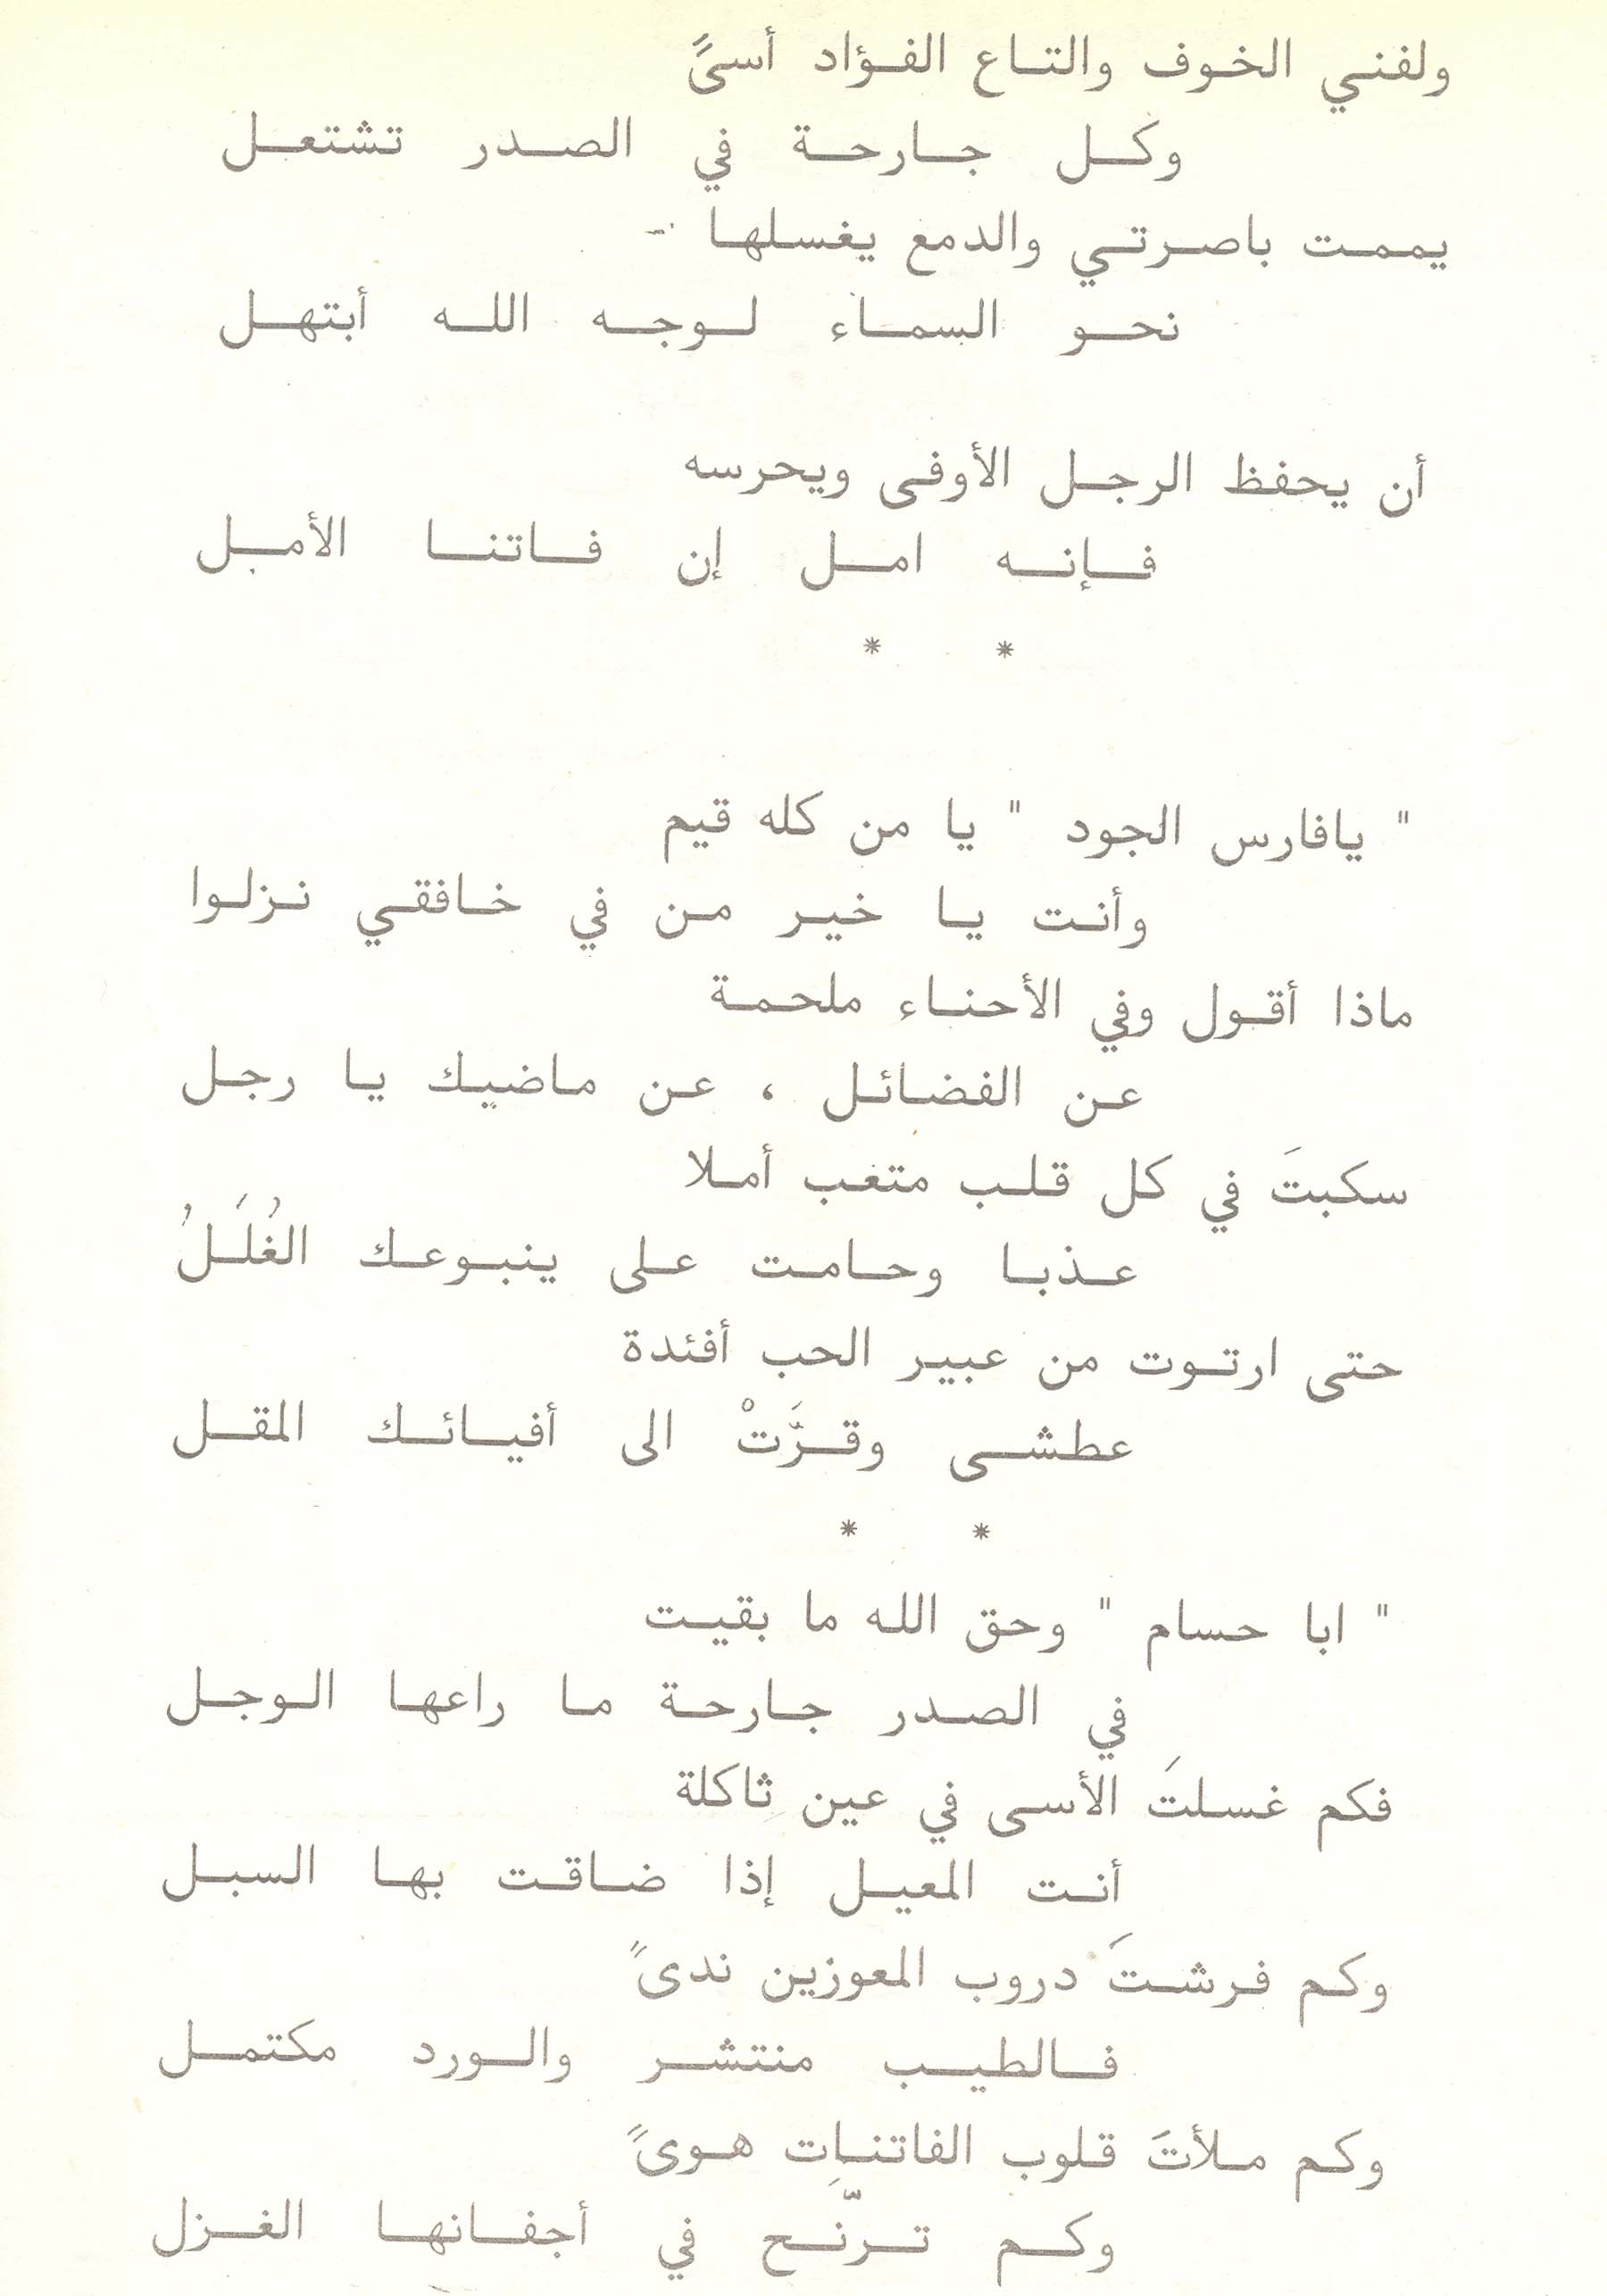 ولفني الخوف والتاع الفؤاد أسىً
وكل جارحة في الصدر تشتعل
يممت باصرتي والدمع يغسلها
نحو السماء لوجه الله أبتهل
أن يحفظ الرجل الأوفى ويحرسه
فإنه امل إن فاتنا الأمل
* *
" يافارس الجود " يا من كله قيم
وأنت يا خير من في خافقي نزلوا
ماذا أقول وفي الأحناء ملحمة
عن الفضائل ، عن ماضيك يا رجل
سكبتَ في كل قلب متعب أملا
عذبا وحامت على ينبوعك الغُلَلُ
حتى ارتوت من عبير الحب أفئدة
عطشى وقرَّتْ الى أفيائك المقل
* *
" ابا حسام " وحق الله ما بقيت
في الصدر جارحة ما راعها الوجل
فكم غسلتَ الأسى في عين ثاكلة
أنت المعيل إذا ضاقت بها السبل
وكم فرشتَ دروب المعوزين ندىً
فالطيب منتشر والورد مكتمل
وكم ملأتَ قلوب الفاتنات هوىً
وكم ترنّح في أجفانها الغزل